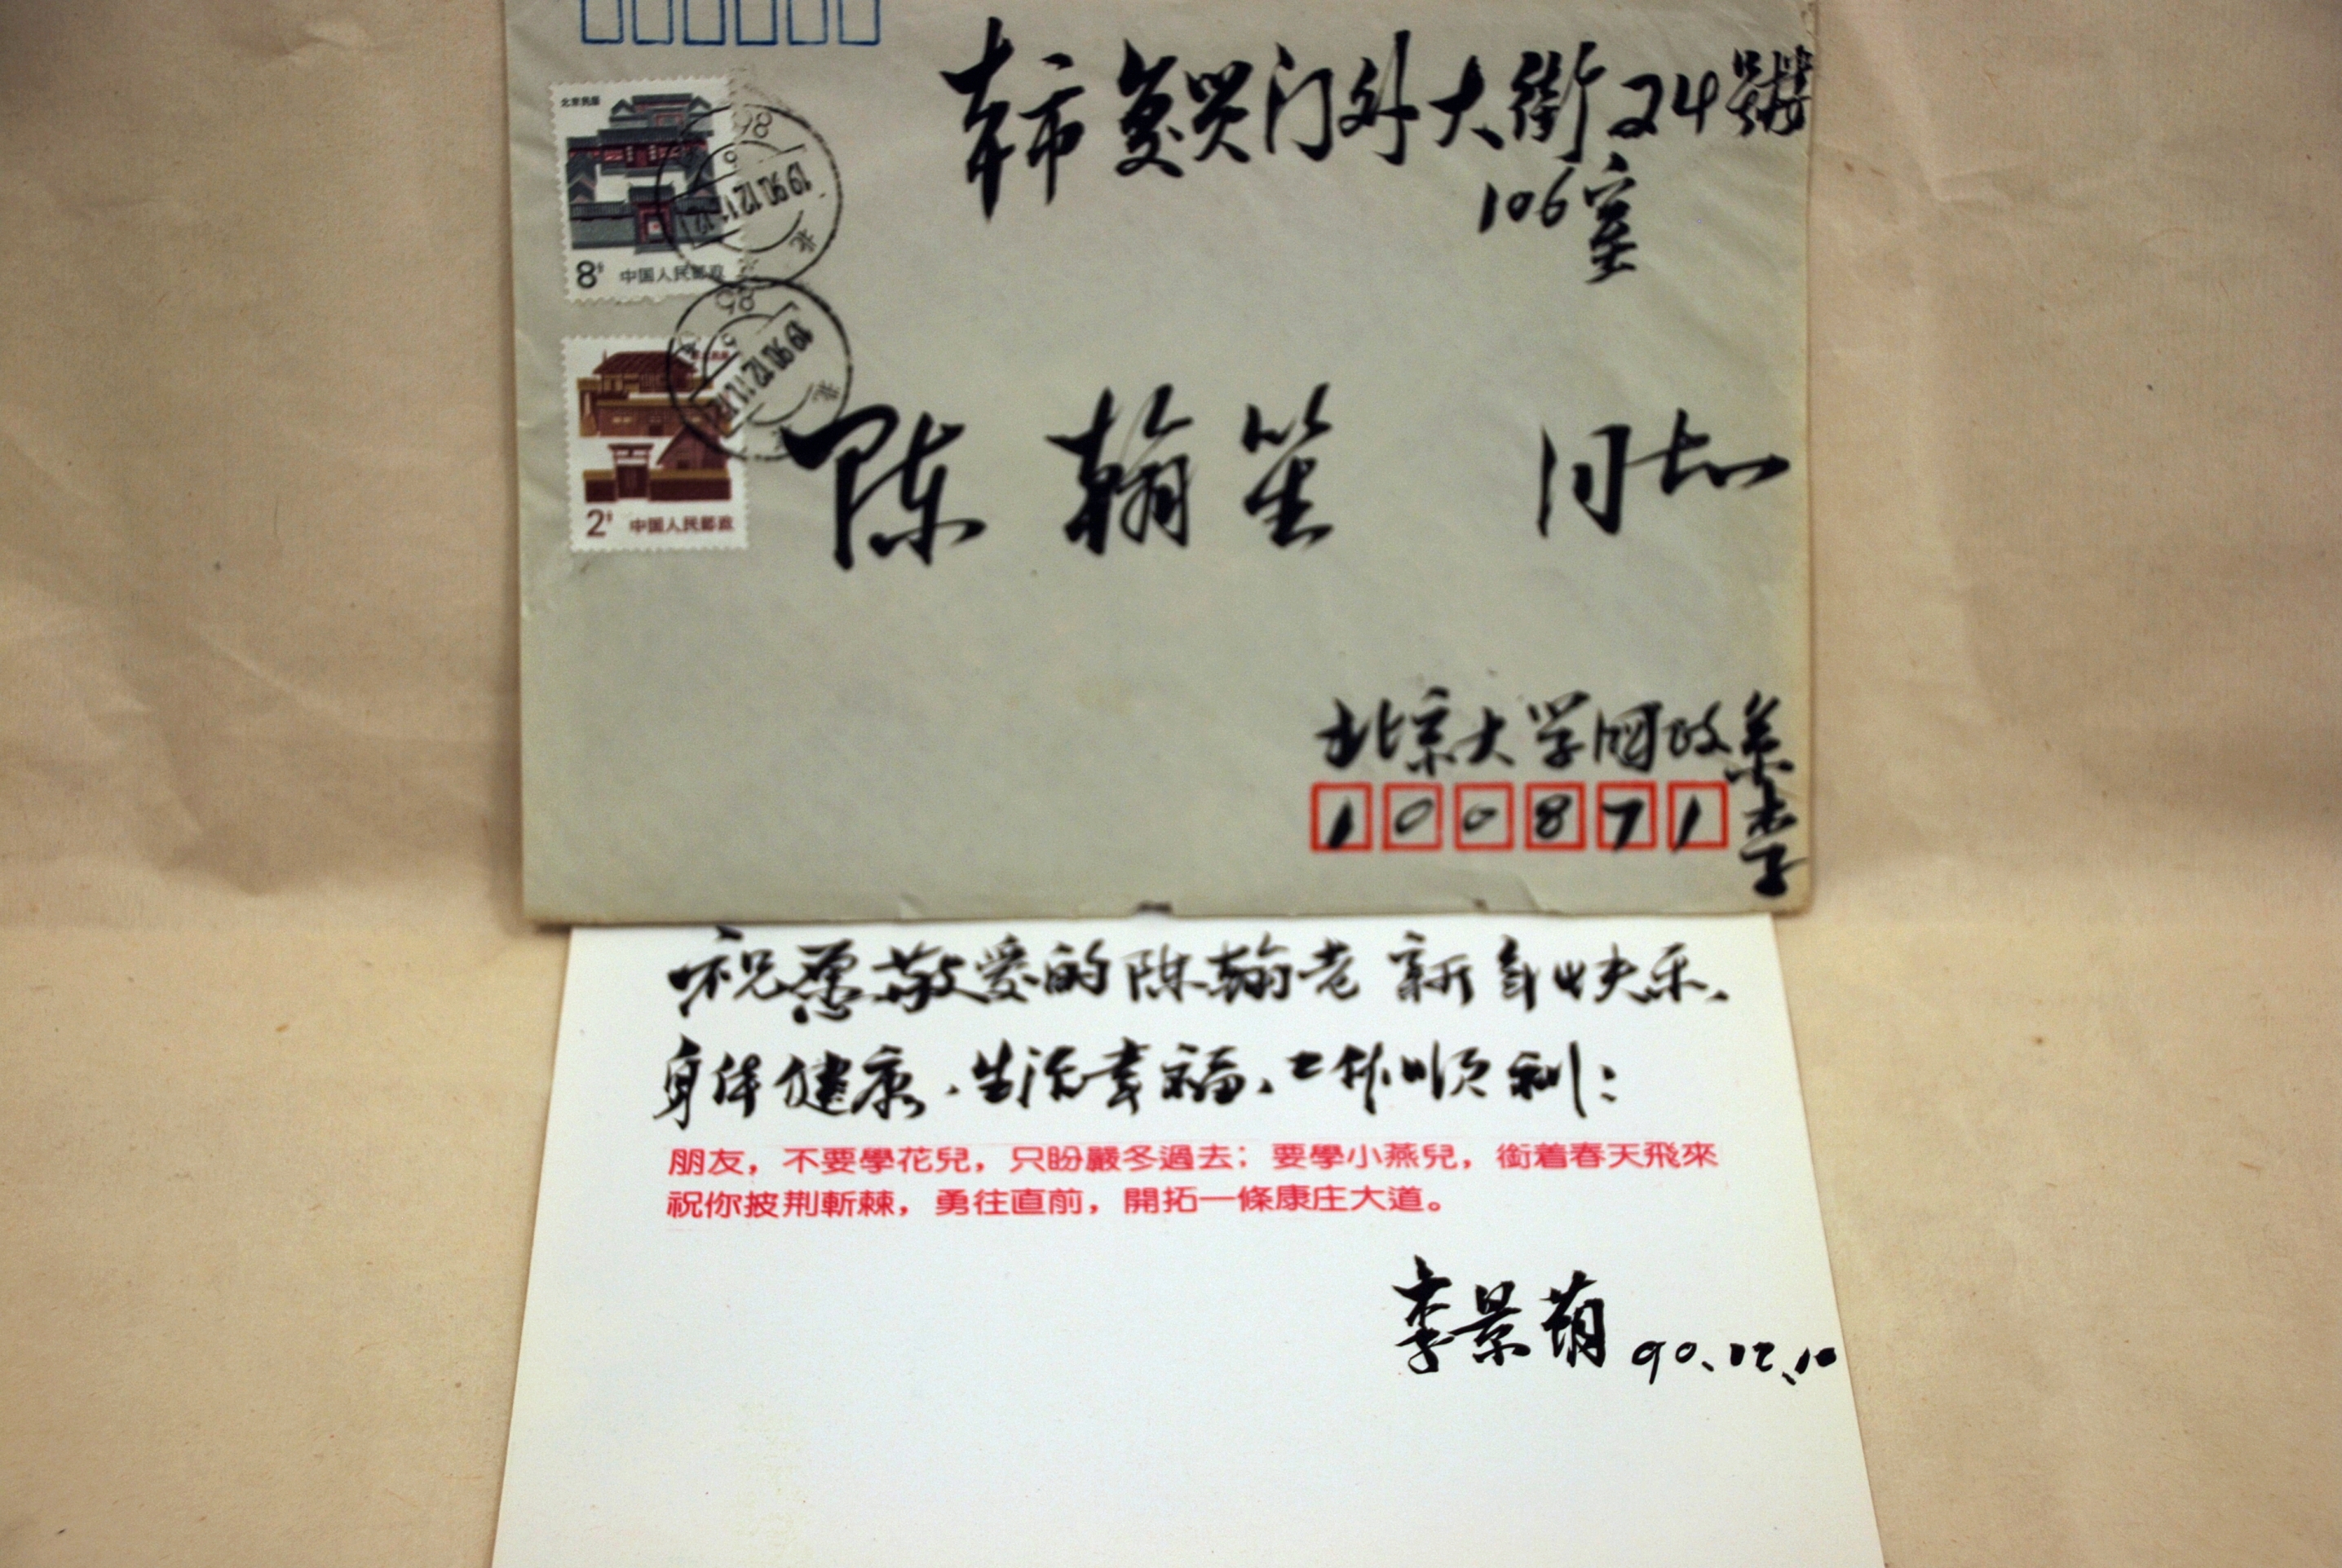 本市复兴门外大街24号楼
106室
北京民居
8分 中国人民邮政
1990.12.11.
北
陈翰笙 同志
2分 中国人民邮政
1990.12.11.12
北
北京大学国政系
100871
李
祝愿敬爱的陈翰老新年快乐、
身体健康、生活幸福、工作顺利：
朋友，不要學花兒，只盼嚴冬過去；要學小燕兒，銜着春天飛來
祝你披荆斬棘，勇往直前，開拓一條康庄大道。
李景 90.12.10